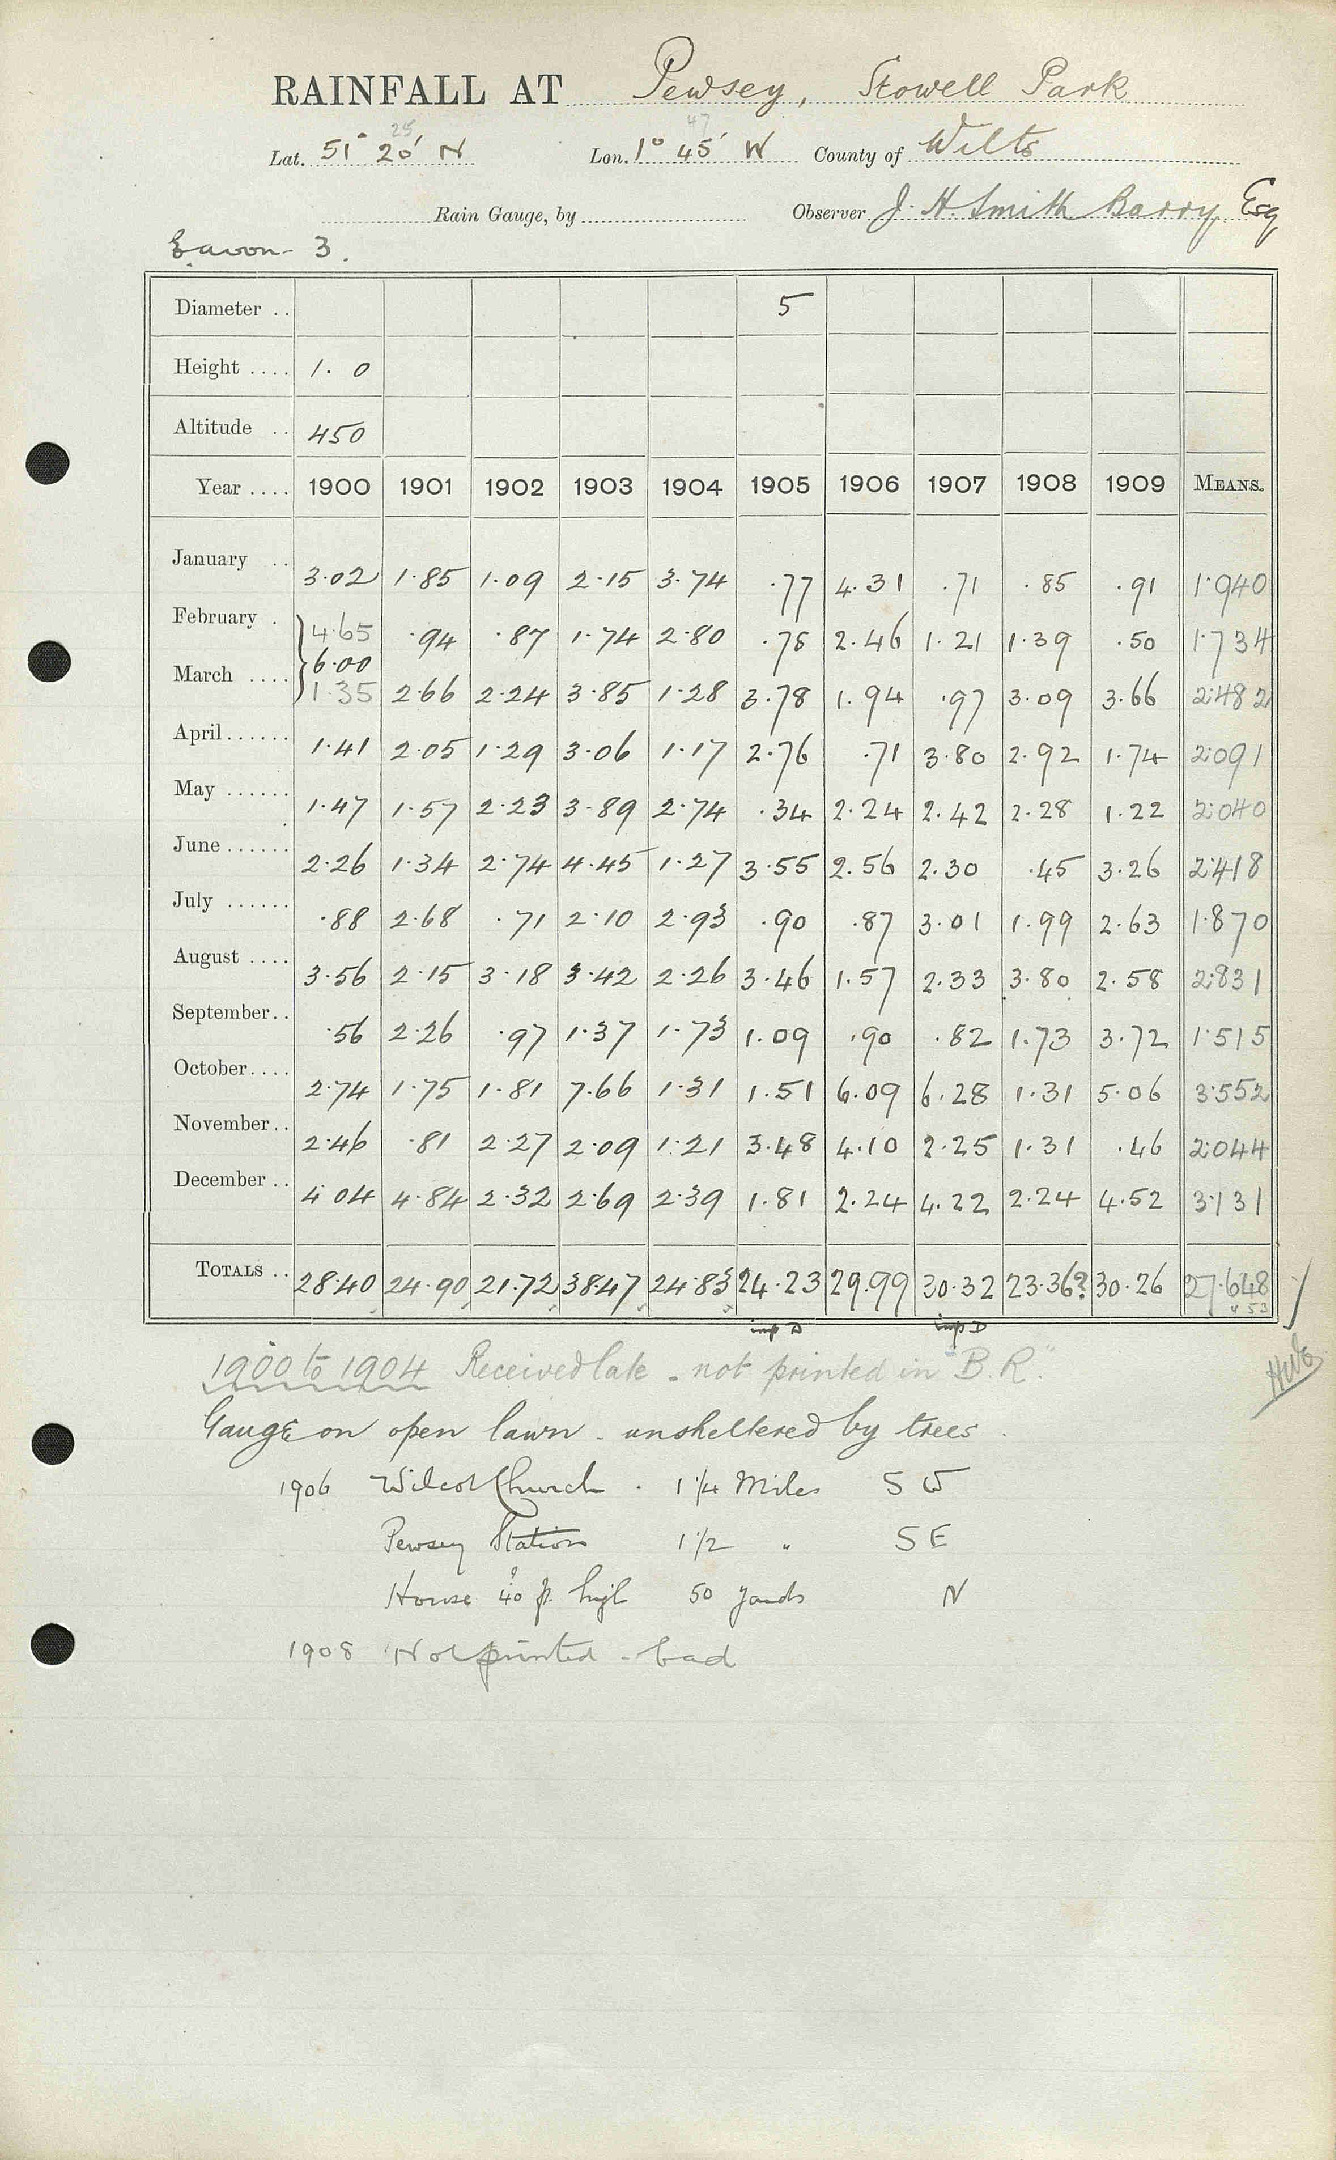 RAINFALL AT Pewsey, Stowell Park
25' 47
Lat. 51° 20' N Lon. 1° 45' W County of Wilts
Rain Gauge, by Observer J. H. Smith Barry Esq
E. avon 3.
Diameter .. 5
Height .... 1. 0
Altitude .. 450
Year .... 1900 1901 1902 1903 1904 1905 1906 1907 1908 1909 MEANS.
January .. 3.02 1.85 1.09 2.15 3.74 .77 4.31 .71 .85 .91 1.940
February . 4.65 .94 .87 1.74 2.80 .78 2.46 1.21 1.39 .50 1.734
6.00
March .... 1.35 2.66 2.24 3.85 1.28 3.78 1.94 .97 3.09 3.66 2.482
April...... 1.41 2.05 1.29 3.06 1.17 2.76 .71 3.80 2.92 1.74 2.091
May ...... 1.47 1.57 2.23 3.89 2.74 .34 2.24 2.42 2.28 1.22 2.040
June ...... 2.26 1.34 2.74 4.45 1.27 3.55 2.56 2.30 .45 3.26 2.418
July ...... .88 2.68 .71 2.10 2.93 .90 .87 3.01 1.99 2.63 1.870
August .... 3.56 2.15 3.18 3.42 2.26 3.46 1.57 2.33 3.80 2.58 2.831
September.. .56 2.26 .97 1.37 1.73 1.09 .90 .82 1.73 3.72 1.515
October.... 2.74 1.75 1.81 7.66 1.31 1.51 6.09 6.28 1.31 5.06 3.552
November.. 2.46 .81 2.27 2.09 1.21 3.48 4.10 2.25 1.31 .46 2.044
December .. 4.04 4.84 2.32 2.69 2.39 1.81 2.24 4.22 2.24 4.52 3.131
TOTALS .. 28.40 24.90 21.72 38.47 24.83 24.23 29.99 30.32 23.36? 30.26 27.648
imp D imp D
1900 to 1904 Received late - not printed in "B.R."
Gauge on open lawn - unsheltered by trees.
1906 Wilcot Church . 1 1/4 Miles S W
Pewsey Station 1 1/2 " S E
House 40 ft high 50 yards N
1908 Not printed - bad